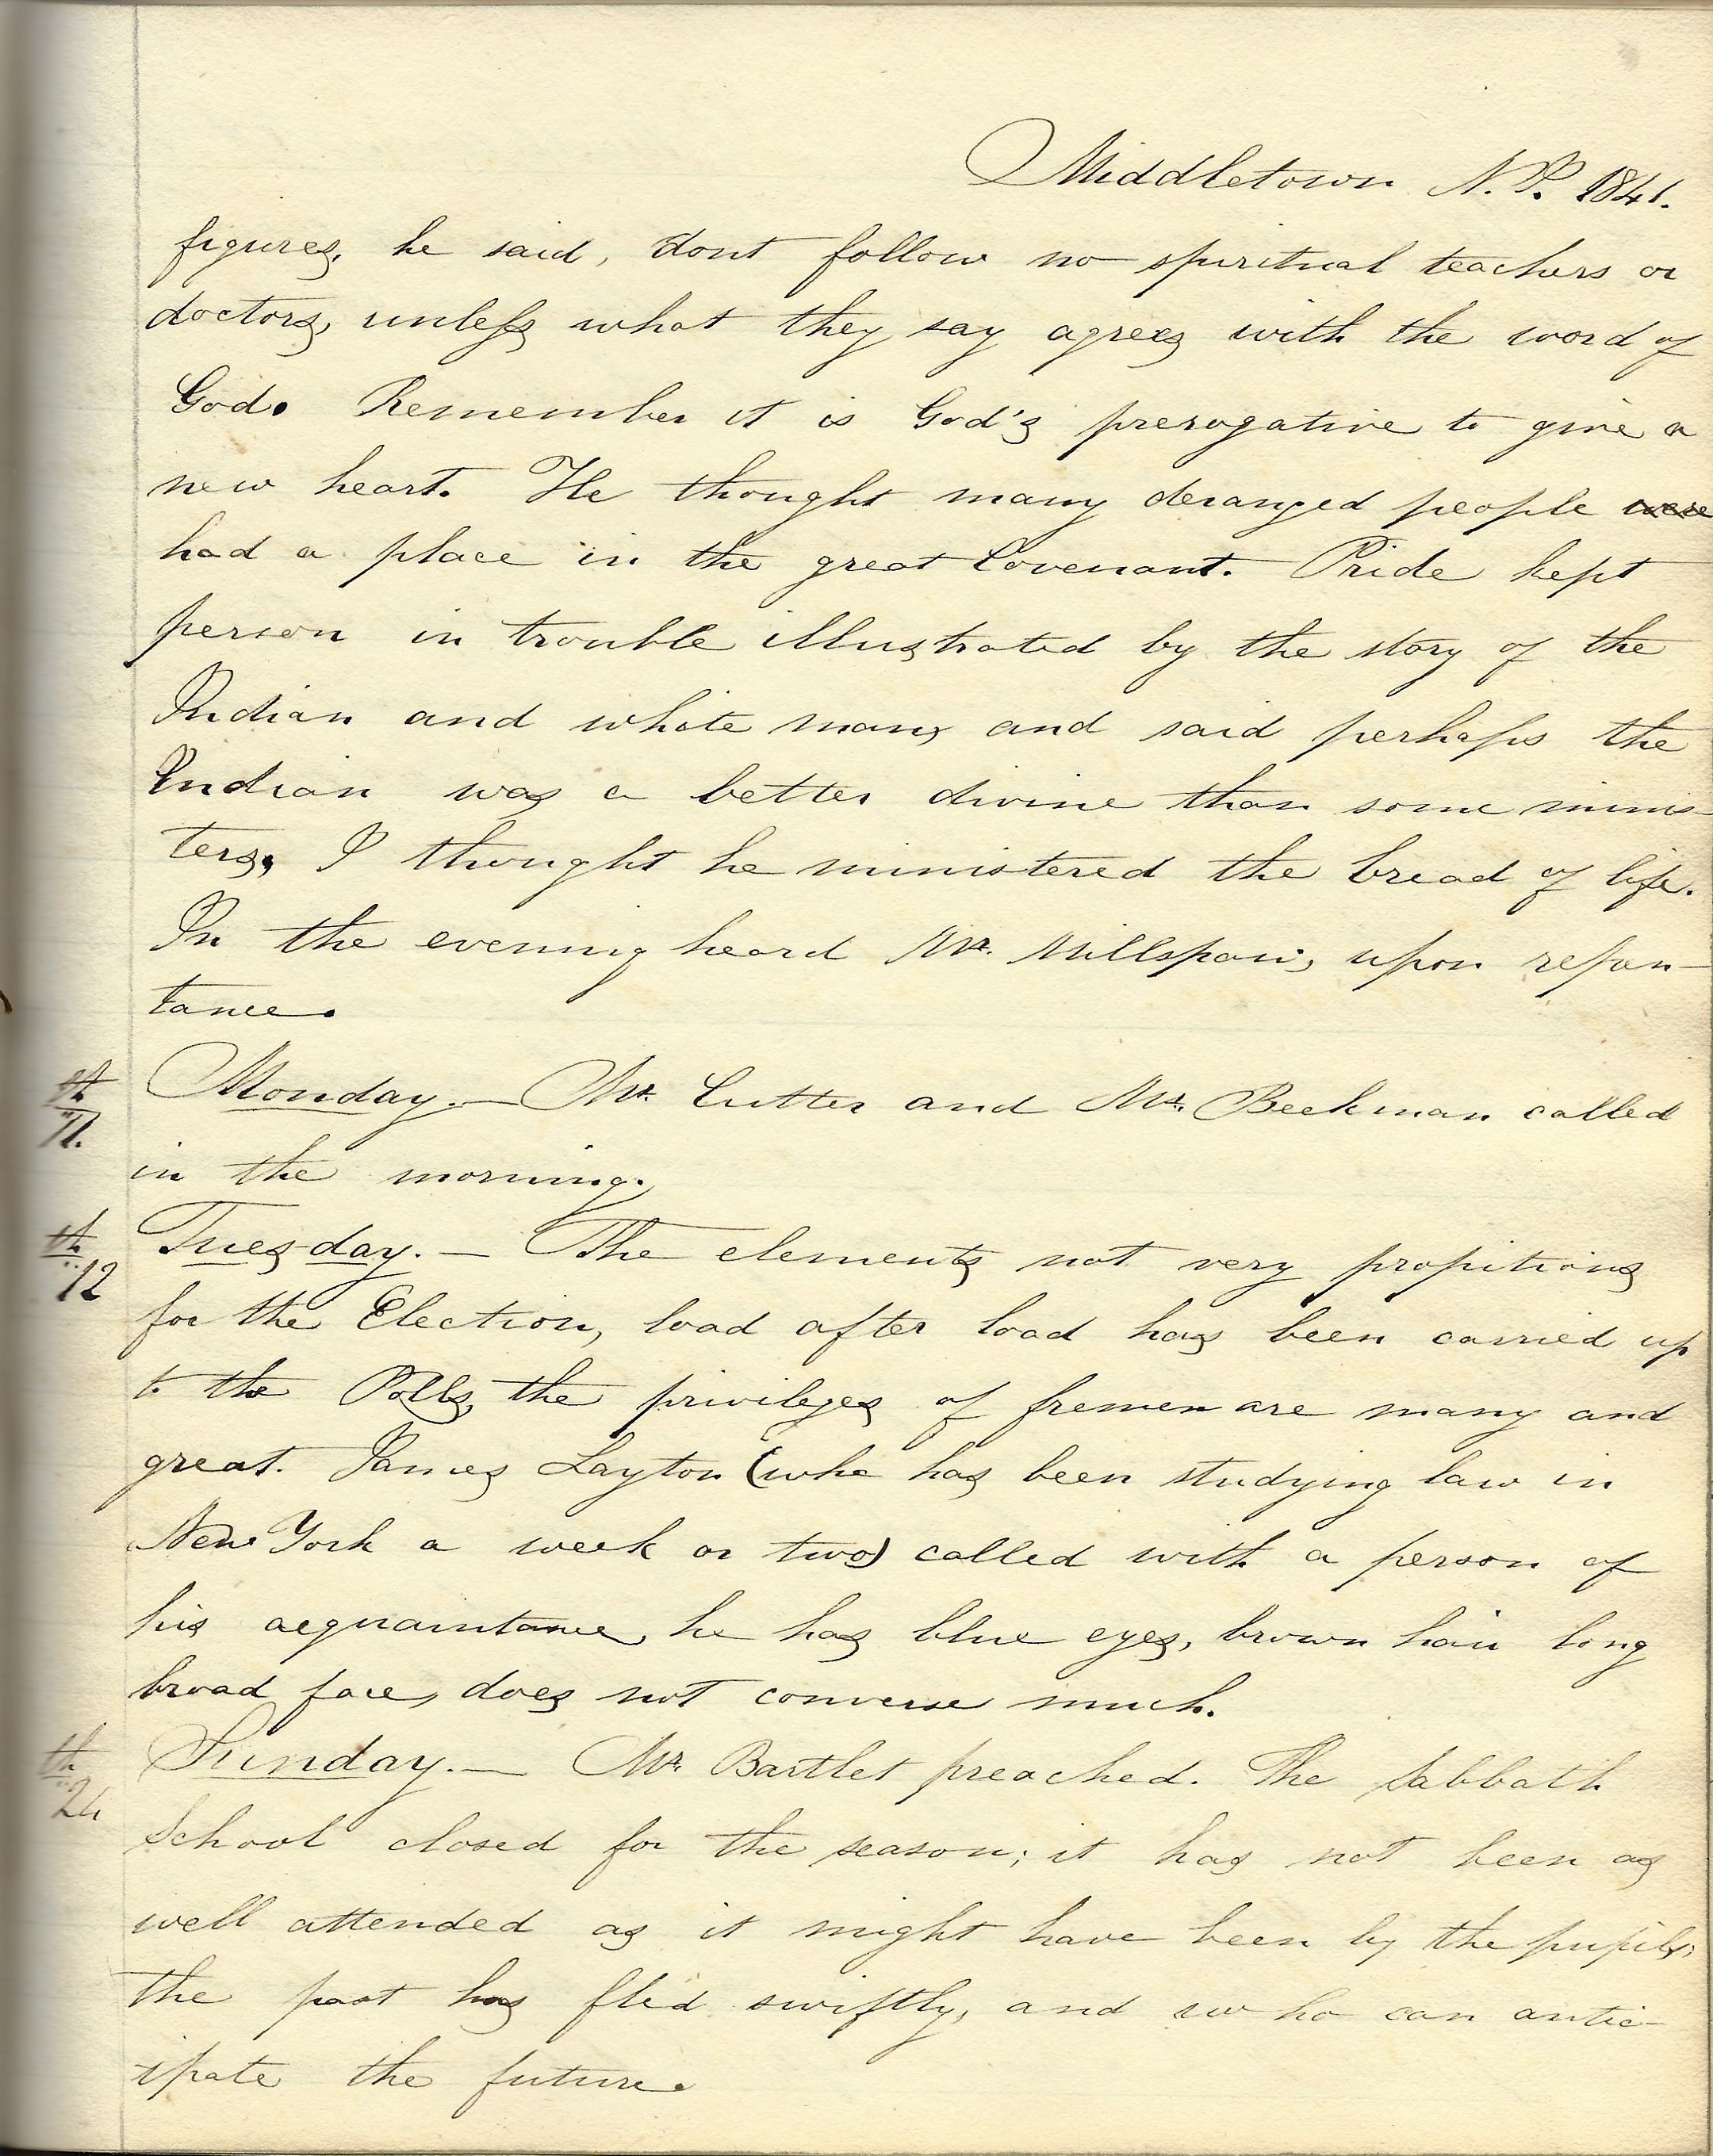 Middletown N.P. 1841.
figures, he said, dont follow no spiritual teachers or
doctors, unless what they say agrees with the word of
God. Remember it is God's prerogative to give a
new heart. He thought many deranged people were
had a place in the great Covenant. Pride kept
person in trouble illustrated by the story of the
Indian and white man, and said perhaps the
Indian was a better divine than some minis-
ters, I thought he ministered the bread of life.
In the evening heard Mr. Millspaw, upon repen-
tance.
th
11. Monday.— Mr. Cutter and Mr. Beekman called
in the morning.
th
12 Tuesday.— The elements not very propitious
for the Election, load after load has been carried up
to the Polls, the privileges of fremen are many and
great. James Layton (who has been studying law in
New York a week or two) called with a person of
his acquaintance, he has blue eyes, brown hair long
broad face, does not converse much.
th
24 Sunday.— Mr. Bartlet preached. The Sabbath
School closed for the season; it has not been as
well attended as it might have been by the pupils;
the past has fled swiftly, and who can antic-
ipate the future.